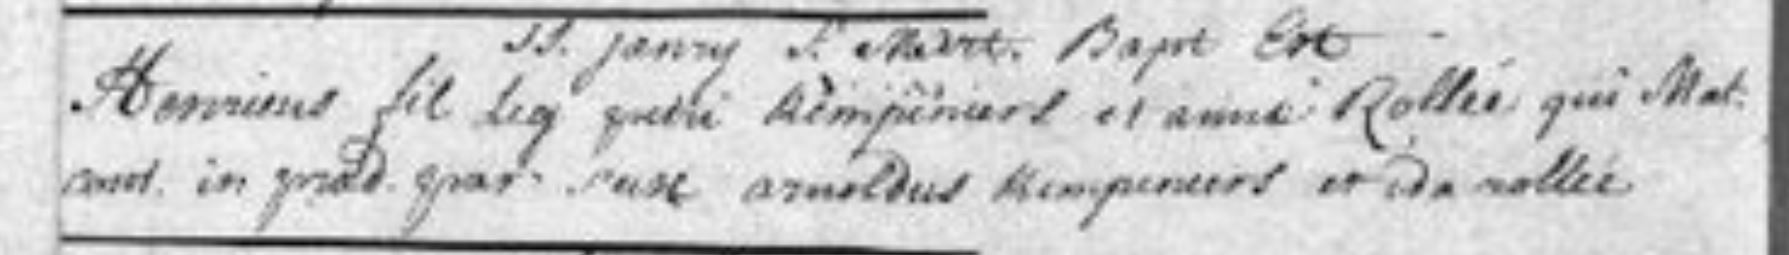 janry S. Mart. Bapt Est
Henricus fil Leg petri Kempeners et anna Rollée qui Mat.
cont. in præd. par. susc arnoldus kempeneers et ida rollée